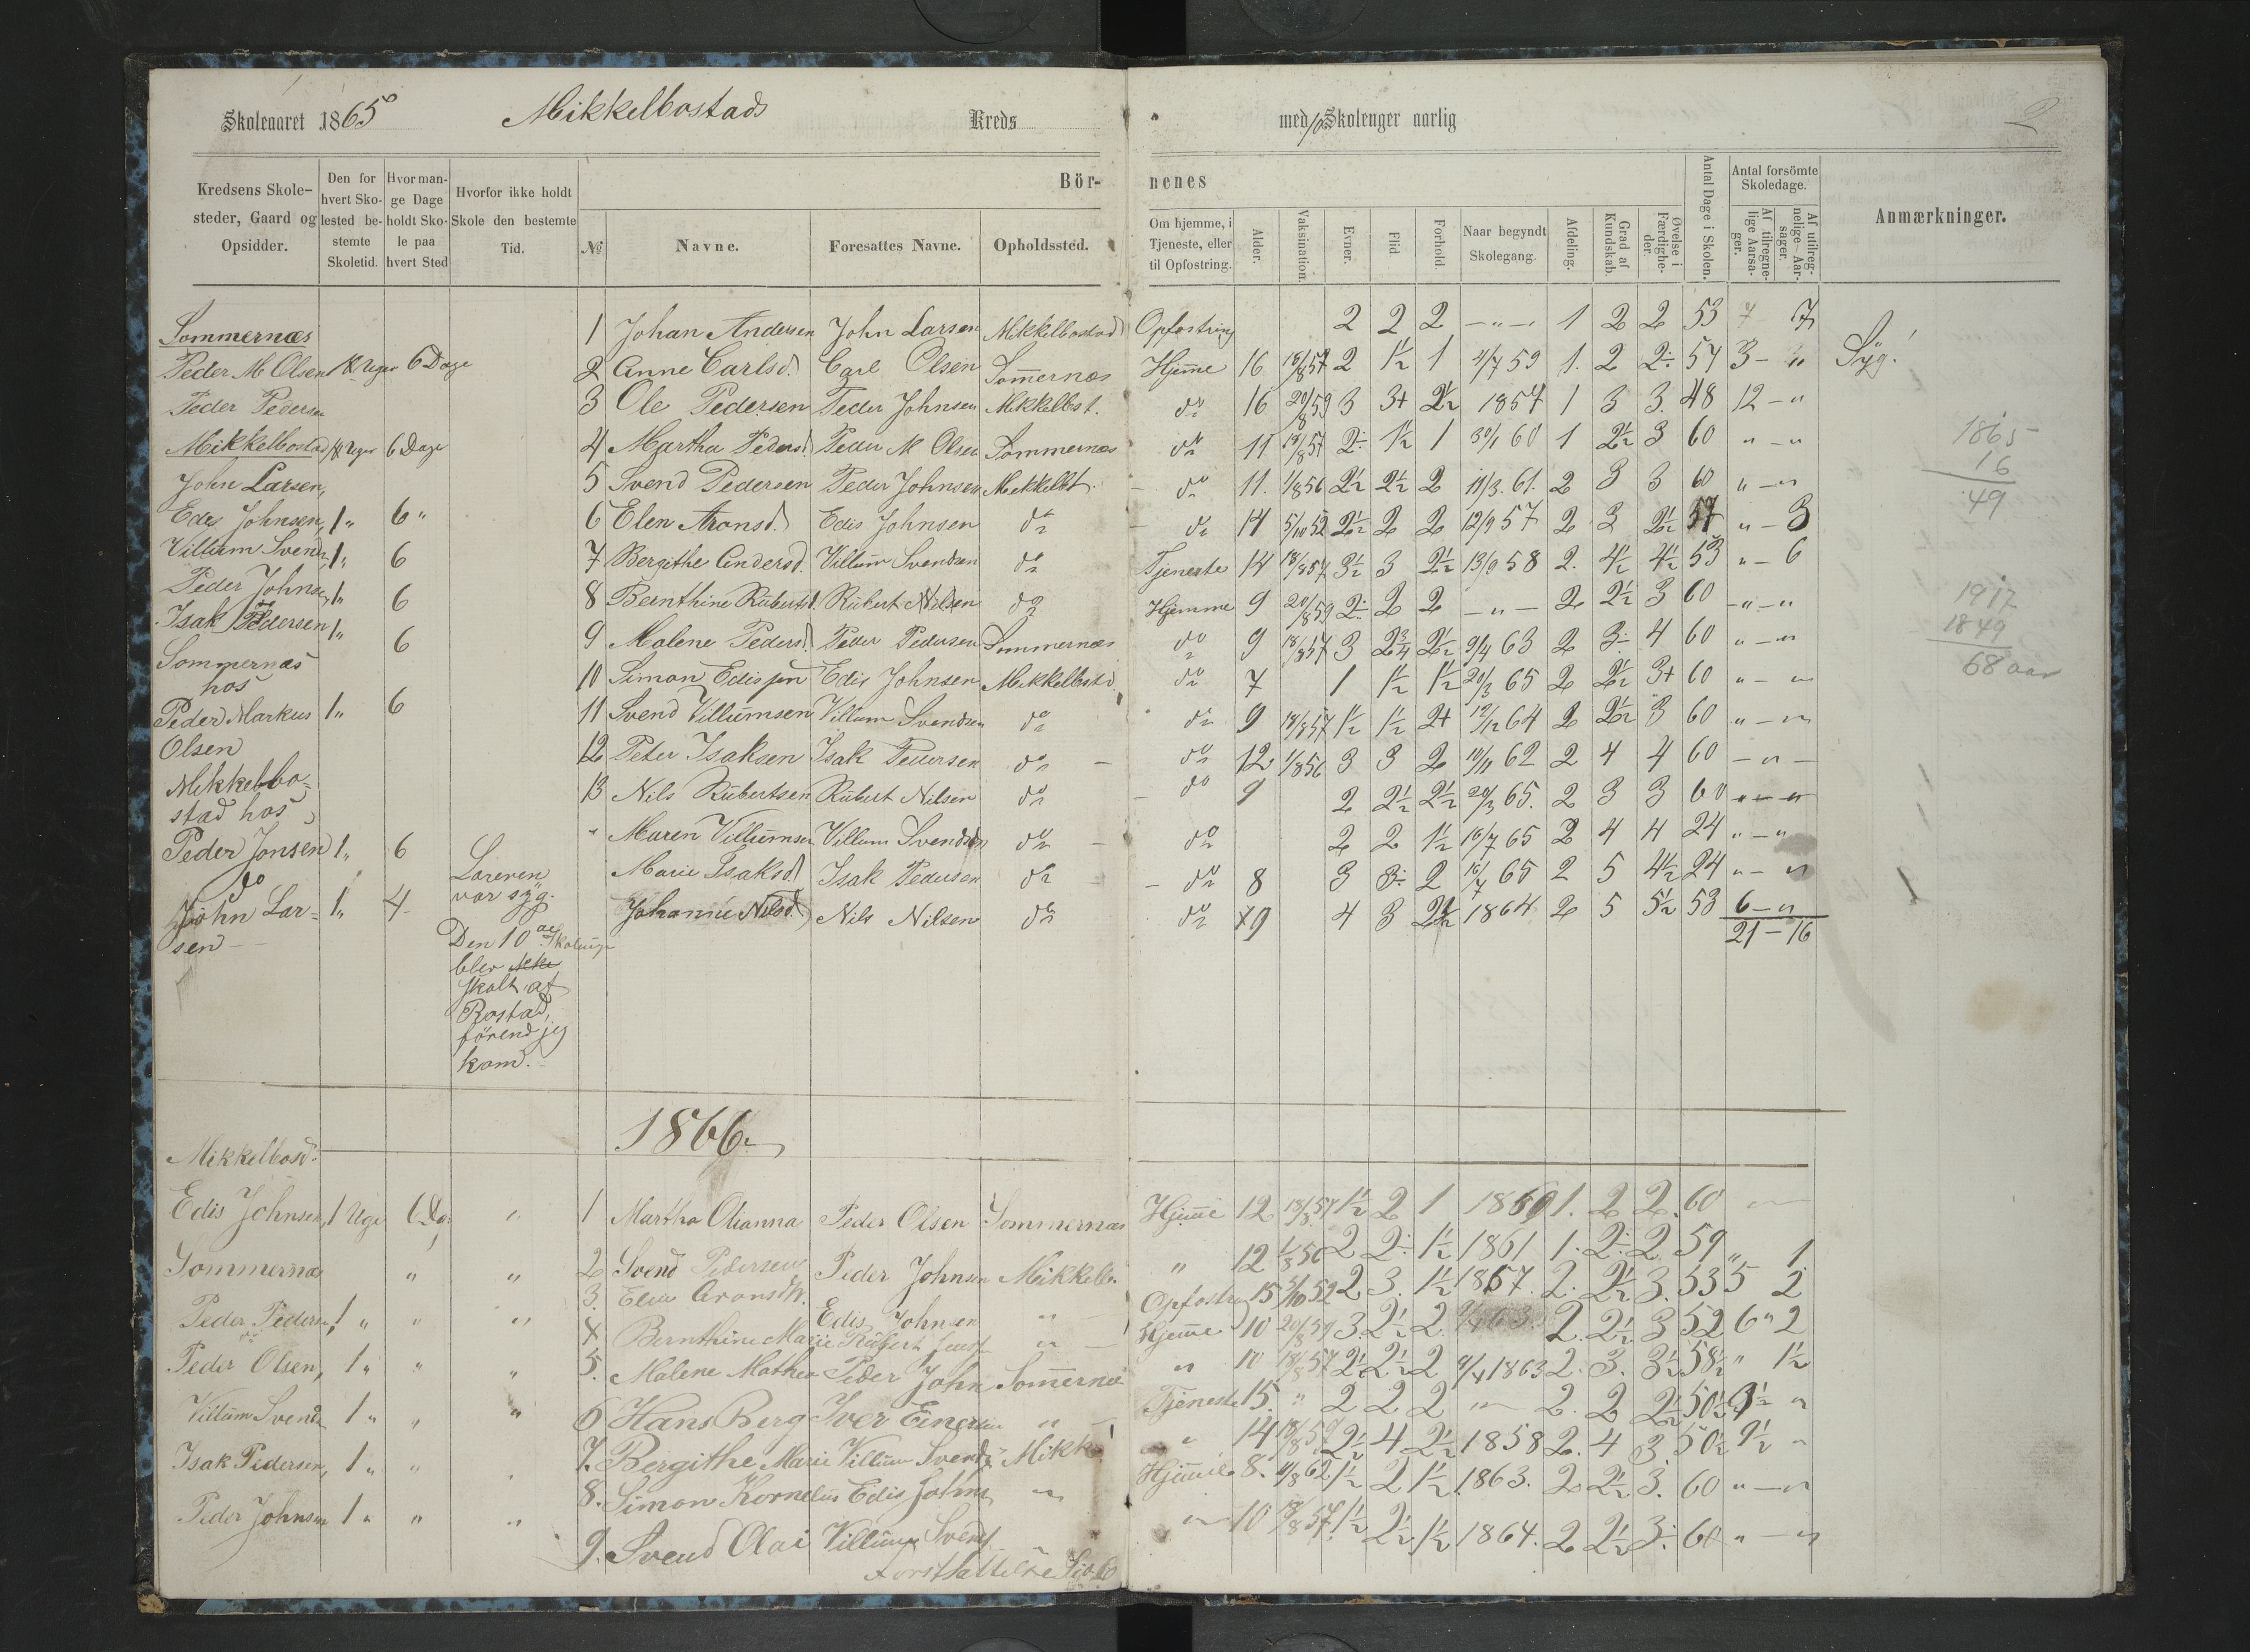 Skoleaaret 1865 Mikkelbostads Kreds med 10 Skoleuger aarlig 2
Kredsens Skolesteder, Gaard og Opsidder. Den for hvert Skolested bestemte Skoletid. Hvormange Dage holdt Skole paa hvert Sted Hvorfor ikke holdt Skole den bestemte Tid. Börnenes
№ Navne. Foresattes Navne. Opholdssted. Om hjemme, i Tjeneste, eller til Opfostring. Alder. Vaksination. Evner. Flid. Forhold. Naar begyndt Skolegang. Afdeling. Grad af Kundskab. Øvelse i Færdigheder. Antal Dage i Skolen. Antal forsömte Skoledage. Af tilregnelige Aarsager. Af utilregnelige Aarsager. Anmærkninger.
Sommernæs
Peder M Olsen 6 Dage
Peder Pedersen
Mikkelbostad 6 Dage
John Larsen,
Edis Johnsen, 1 " 6 "
Villum Svends 1 " 6
Peder Johnsen 1 " 6
Isak Pedersen 1 " 6
Sommernæs
hos
Peder Markus 1 " 6
Olsen
Mikkelbo-
stad hos
Peder Jonsen 1 " 6
do
John Lar- 1 " 4
sen
Læreren
var syg.
Den 10de Skoleuge
blev
skolt af
Rostad,
förend jeg
kom.
1 Johan Andersen John Larsen Mikkelbostad Opfostring 2 2 2 — " — 1 2 2 53 7 7
2 Anne Carlsd. Carl Olsen Sommernæs Hjemme 16 18/8 57 2 1½ 1 4/7 59 1. 2 2÷ 57 3 - " Syg!
3 Ole Pedersen Peder Johnsen Mikkelbst. do 16 20/8 59 3 3+ 2½ 1857 1 3 3. 48 12 - "
4 Martha Pedersd. Peder M Olsen Sommernæs do 11 18/8 57 2÷ 1½ 1 30/1 60 1 2½ 3 60 " - "
5 Svend Pedersen Peder Johnsen Mikkelbt. do 11. 1/8 56 2½ 2½ 2 11/3. 61. 2 3 3 60 " - "
6 Elen Aronsd. Edis Johnsen do do 14 5/10 52 2½ 2 2 12/9 57 2 3 2½ 57 " - 3
7 Bergithe Andersd. Villum Svendsen do Tjeneste 14 18/8 57 3½ 3 2½ 13/9 58 2. 4½ 4½ 53 " - 6
8 Bernthine Rübertsd. Rübert Nilsen do Hjemme 9 20/8 59 2÷ 2 2 — " — 2 2½ 3 60 - " - "
9 Malene Pedersd. Peder Pedersen Sommernæs do 9 18/8 57 3 2¾ 2½ 9/4 63 2 3÷ 4 60 " - "
10 Simon Edissen Edis Johnsen Mikkelbstd. do 7 1 1½ 1½ 20/3 65 2 2½ 3+ 60 " - "
11 Svend Villumsen Villum Svendsen do do 9 18/8 57 1½ 1½ 2+ 12/12 64 2 2½ 3 60 " - "
12 Peter Isaksen Isak Pedersen do do 12 1/8 56 3 3 2 10/11 62 2 4 4 60 - " -
13 Nils Rübertsen Rübert Nilsen do do 9 2 2½ 2½ 20/3 65. 2 3 3 60 " - "
" Maren Villumsen Villum Svendsen do do 2 2 1½ 16/7 65 2 4 4 24 " - "
Marie Isaksd. Isak Pedersen do do 8 3 3÷ 2 16/7 65 2 5 4½ 24 " - "
Johanne Nilsd. Nils Nilsen do do 9 4 3 2½ 1864 2 5 5½ 53 6 - "
21 - 16
1865
16
49
1917
1849
68 aar
1866
Mikkelbosd.
Edis Johnsen, 1 Uge 6 Da.
Sommernæs
Peder Pedersen, 1 "
Peder Olsen, 1 "
Villum Svends 1 "
Isak Pedersen, 1 "
Peder Johnsen 1 "
1 Martha Olianna Peder Olsen Sommernæs Hjemme 12 18/8 57 1½ 2 1 1860 1. 2 2. 60
2 Svend Pedersen Peder Johnsen Mikkelb. " 12 1/8 56 2 2÷ 1½ 1861 1. 2÷ 2 59 " 1
3. Elen Edis Johnsen " Opfostrng 15 5/10 52 2 3. 1½ 1857. 2. 2½ 3. 53 5 2
4 Bernthine Marie Hjemme 10 20/8 59 3 2½ 2. 2. 2½ 3 52 6 " 2
5. Malene Mathea Peder John Sommernæs " 10 18/8 57 2½ 2½ 2 9/4 1863 2. 3. 3½ 58½ " 1½
6 Hans Berg Iver Einersen " Tjeneste 15. " 2 2 2 " 2. 2 2½ 50½ 9½ "
7. Bergithe Marie Villum Svends. Mikk " 14 18/8 57 2½ 4 2½ 1858 2. 4 3. 50½ 9½ "
8. Simon Kornelius Edis Johns. " Hjemme 8. 62 1½ 2 1½ 1863. 2 2½ 3. 60 " - "
9. Svend Olai Villum Svends " 10 18/8 57 1½ 2½ 1½ 1864. 2 2½ 3÷ 60 " - "
Forsthattelse Side